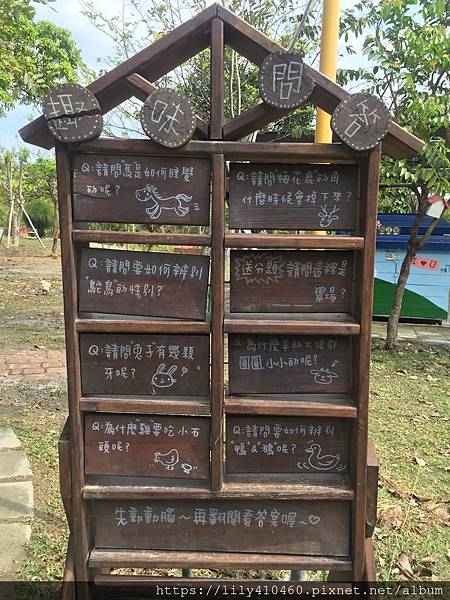 趣味問答
Q:請問馬是如何睡覺
的呢?
Q:請問梅花鹿的角
什麼時候會掉下來
呢?
Q:請問要如何辨別
"鴕鳥"的性別?
送分題:請問這裡是
農場?
Q:請問兔子有幾顆
牙呢?
Q:為什麼羊的大便都
圓圓、小小的呢?
Q:為什麼雞要吃小石
頭呢?
Q:請問要如何辨別
"鴨"&"鵝"呢?
先動動腦~再翻開看答案喔~♡
https://lily410460.pixnet.net/album